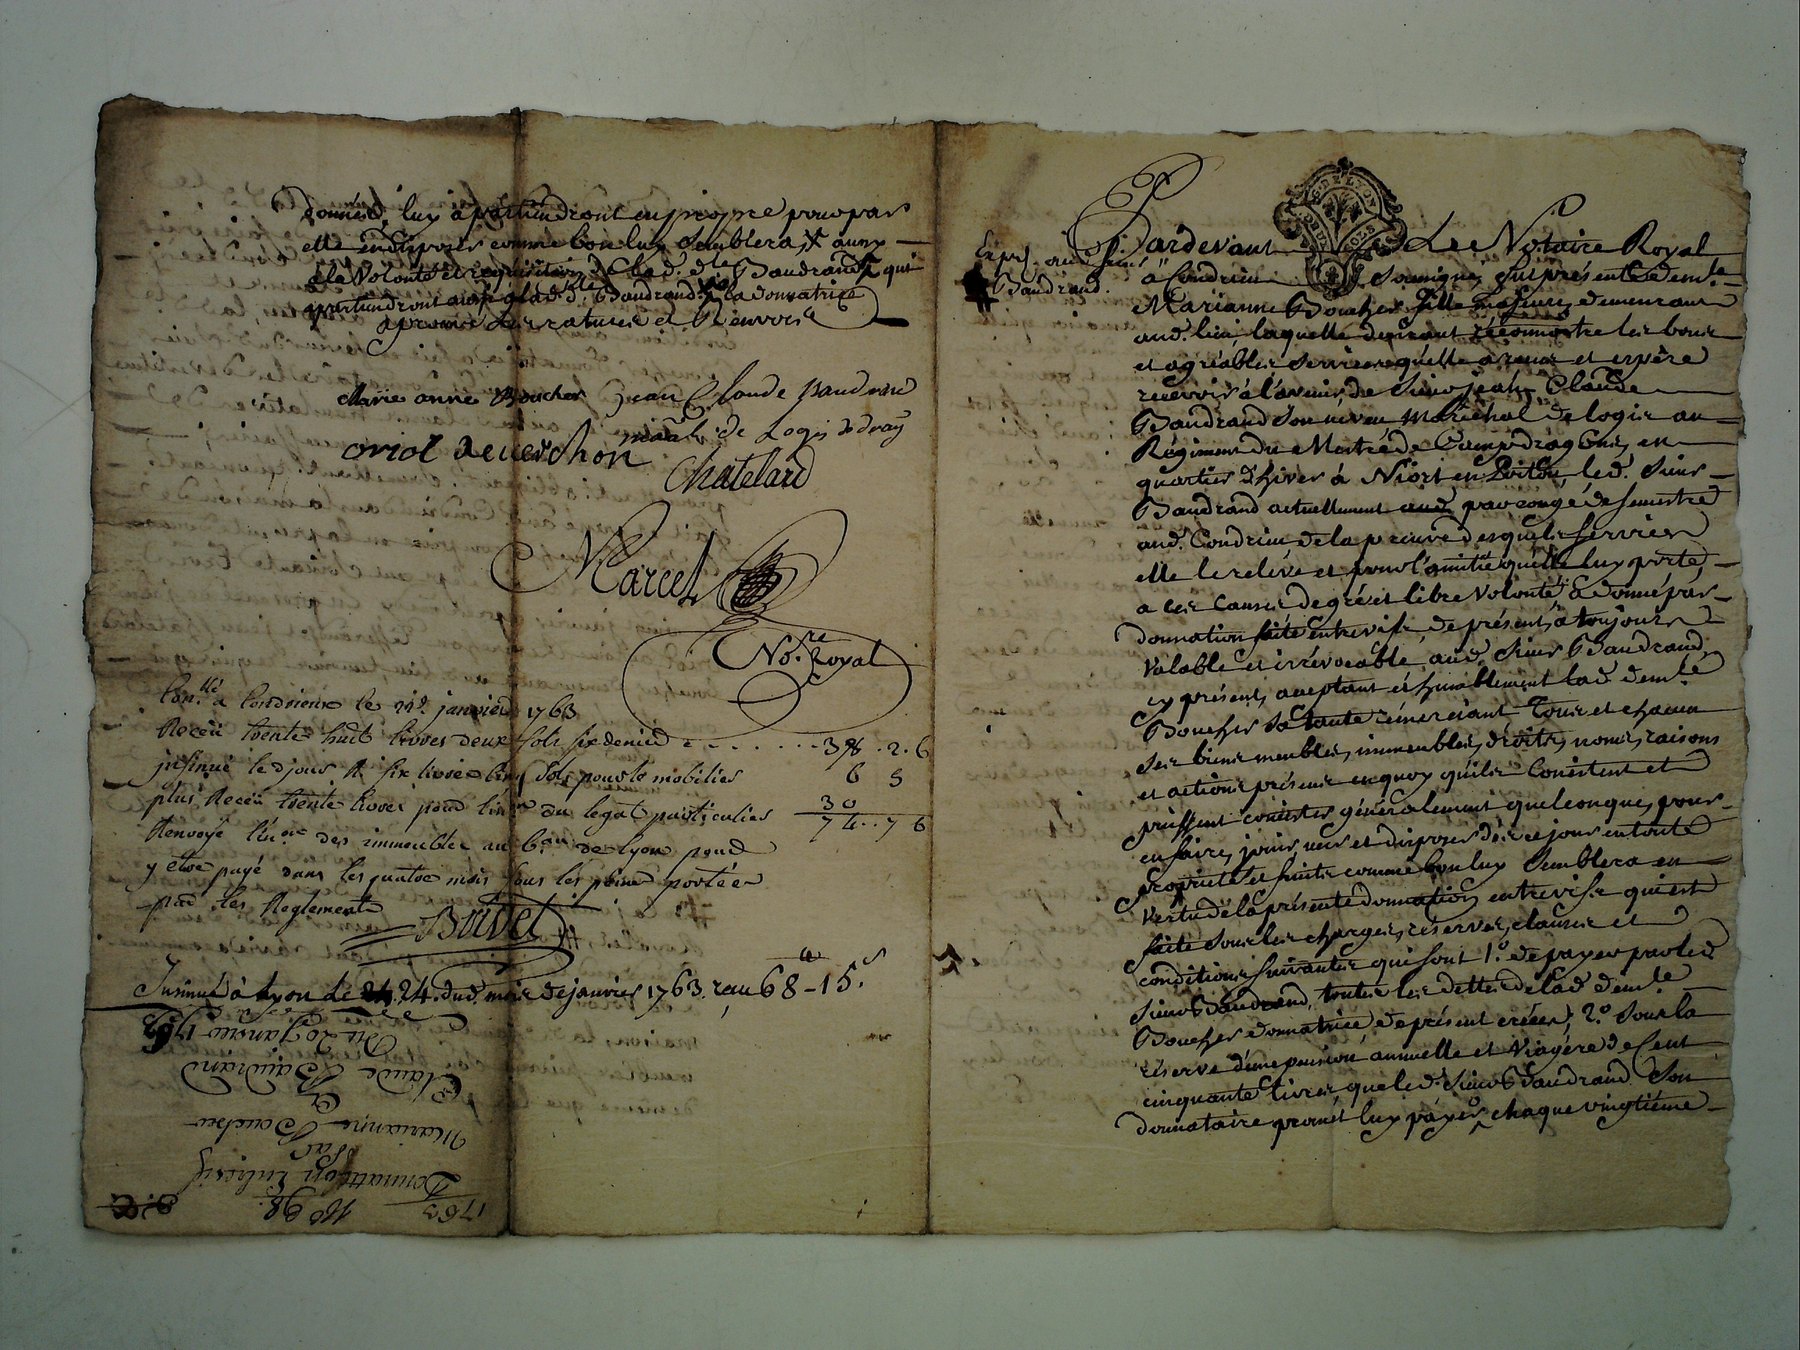 donnés, luy apartiendront en propre pour par
elle en disposer comme bon luy semblera, X aux
à la Volonté et requisition de lad. d.lle Baudrand qui
apartiendront aussi à lad. d. Baudrand la donnatrice
aprouvé les ratures et Renvois
Marie anne Boucher Jean Claude Baudrand
maal de Logis de drag
oriol deverchon
Chatelard
Marcel
No.re Royal
Con.llé à Condrieux le 21e janvier 1763
Receu trente huit livres deux sols six denier . . . . . . . 38 . 2 . 6
insinué led jour R six livres cinq sols pour le mobilier 6 5
plus Receu trente livres pour l'in.on du legat particulier 30
74 . . 7 6
Renvoyé l'in.on des immeubles au b.au de Lyon pour
y etre payé dans les quatre mois sous les peines portées
par les Reglements
Brivet
Insinué à Lyon Le 24. dud. mois de janvier 1763. reçu 68 - 15.s
1763 No 98.
Donnation Entrevifs
Par
Marianne Boucher
à
Claude Baudrand
Du 20 Janvier 1763
GEN. DE LYON
Expd. aud. sieur
Baudrand.
Pardevant Le Notaire Royal
à Condrieu soussigné, fut présente dem.lle
Marianne Boucher fille majeure, demeurant
aud. lieu, laquelle desirant réconnoitre les bons
et agréables services quelle a reçus et espère
recevoir à l'avenir de sieur jean Claude
Baudrand son néveu Maréchal de logis au
Régiment du Mestre de Camp dragons, en
quartier d'hiver à Niort en Poitou, led. sieur
Baudrand actuellement par congé de semestre
aud. Condrieu de la preuve desquels services
elle le relève et pour l'amitié qu'elle luy porte,
a ces causes de gré et libre Volonté, a donné par
donnation faite entrevifs, de présent à toujours
Valable et irrévocable, aud. sieur Baudrand
cy présent, acceptant et humblement lad. dem.lle
Boucher sa tante rémerciant Tous et chacun
ses biens meubles, immeubles, droits, noms, raisons
et actions présens en quoy qu'ils consistent et
puissent consister généralement quelconques, pour
en faire, jouir, user et disposer dès ce jour en toute
propriété et suite comme bon luy semblera en
vertu de la présente donnation entrevifs qui est
faite sous les charges, réserves, clauses et
conditions suivantes qui sont 1.o de payer par led.
sieur Baudrand, toutes les dettes de lad. dem.lle
Boucher donnatrice, de présent créées, 2.o sous la
réserve d'une pension annuelle et Viagère de Cent
cinquante livres, que led. sieur Baudrand son
donnataire promet luy payer chaque vingtième